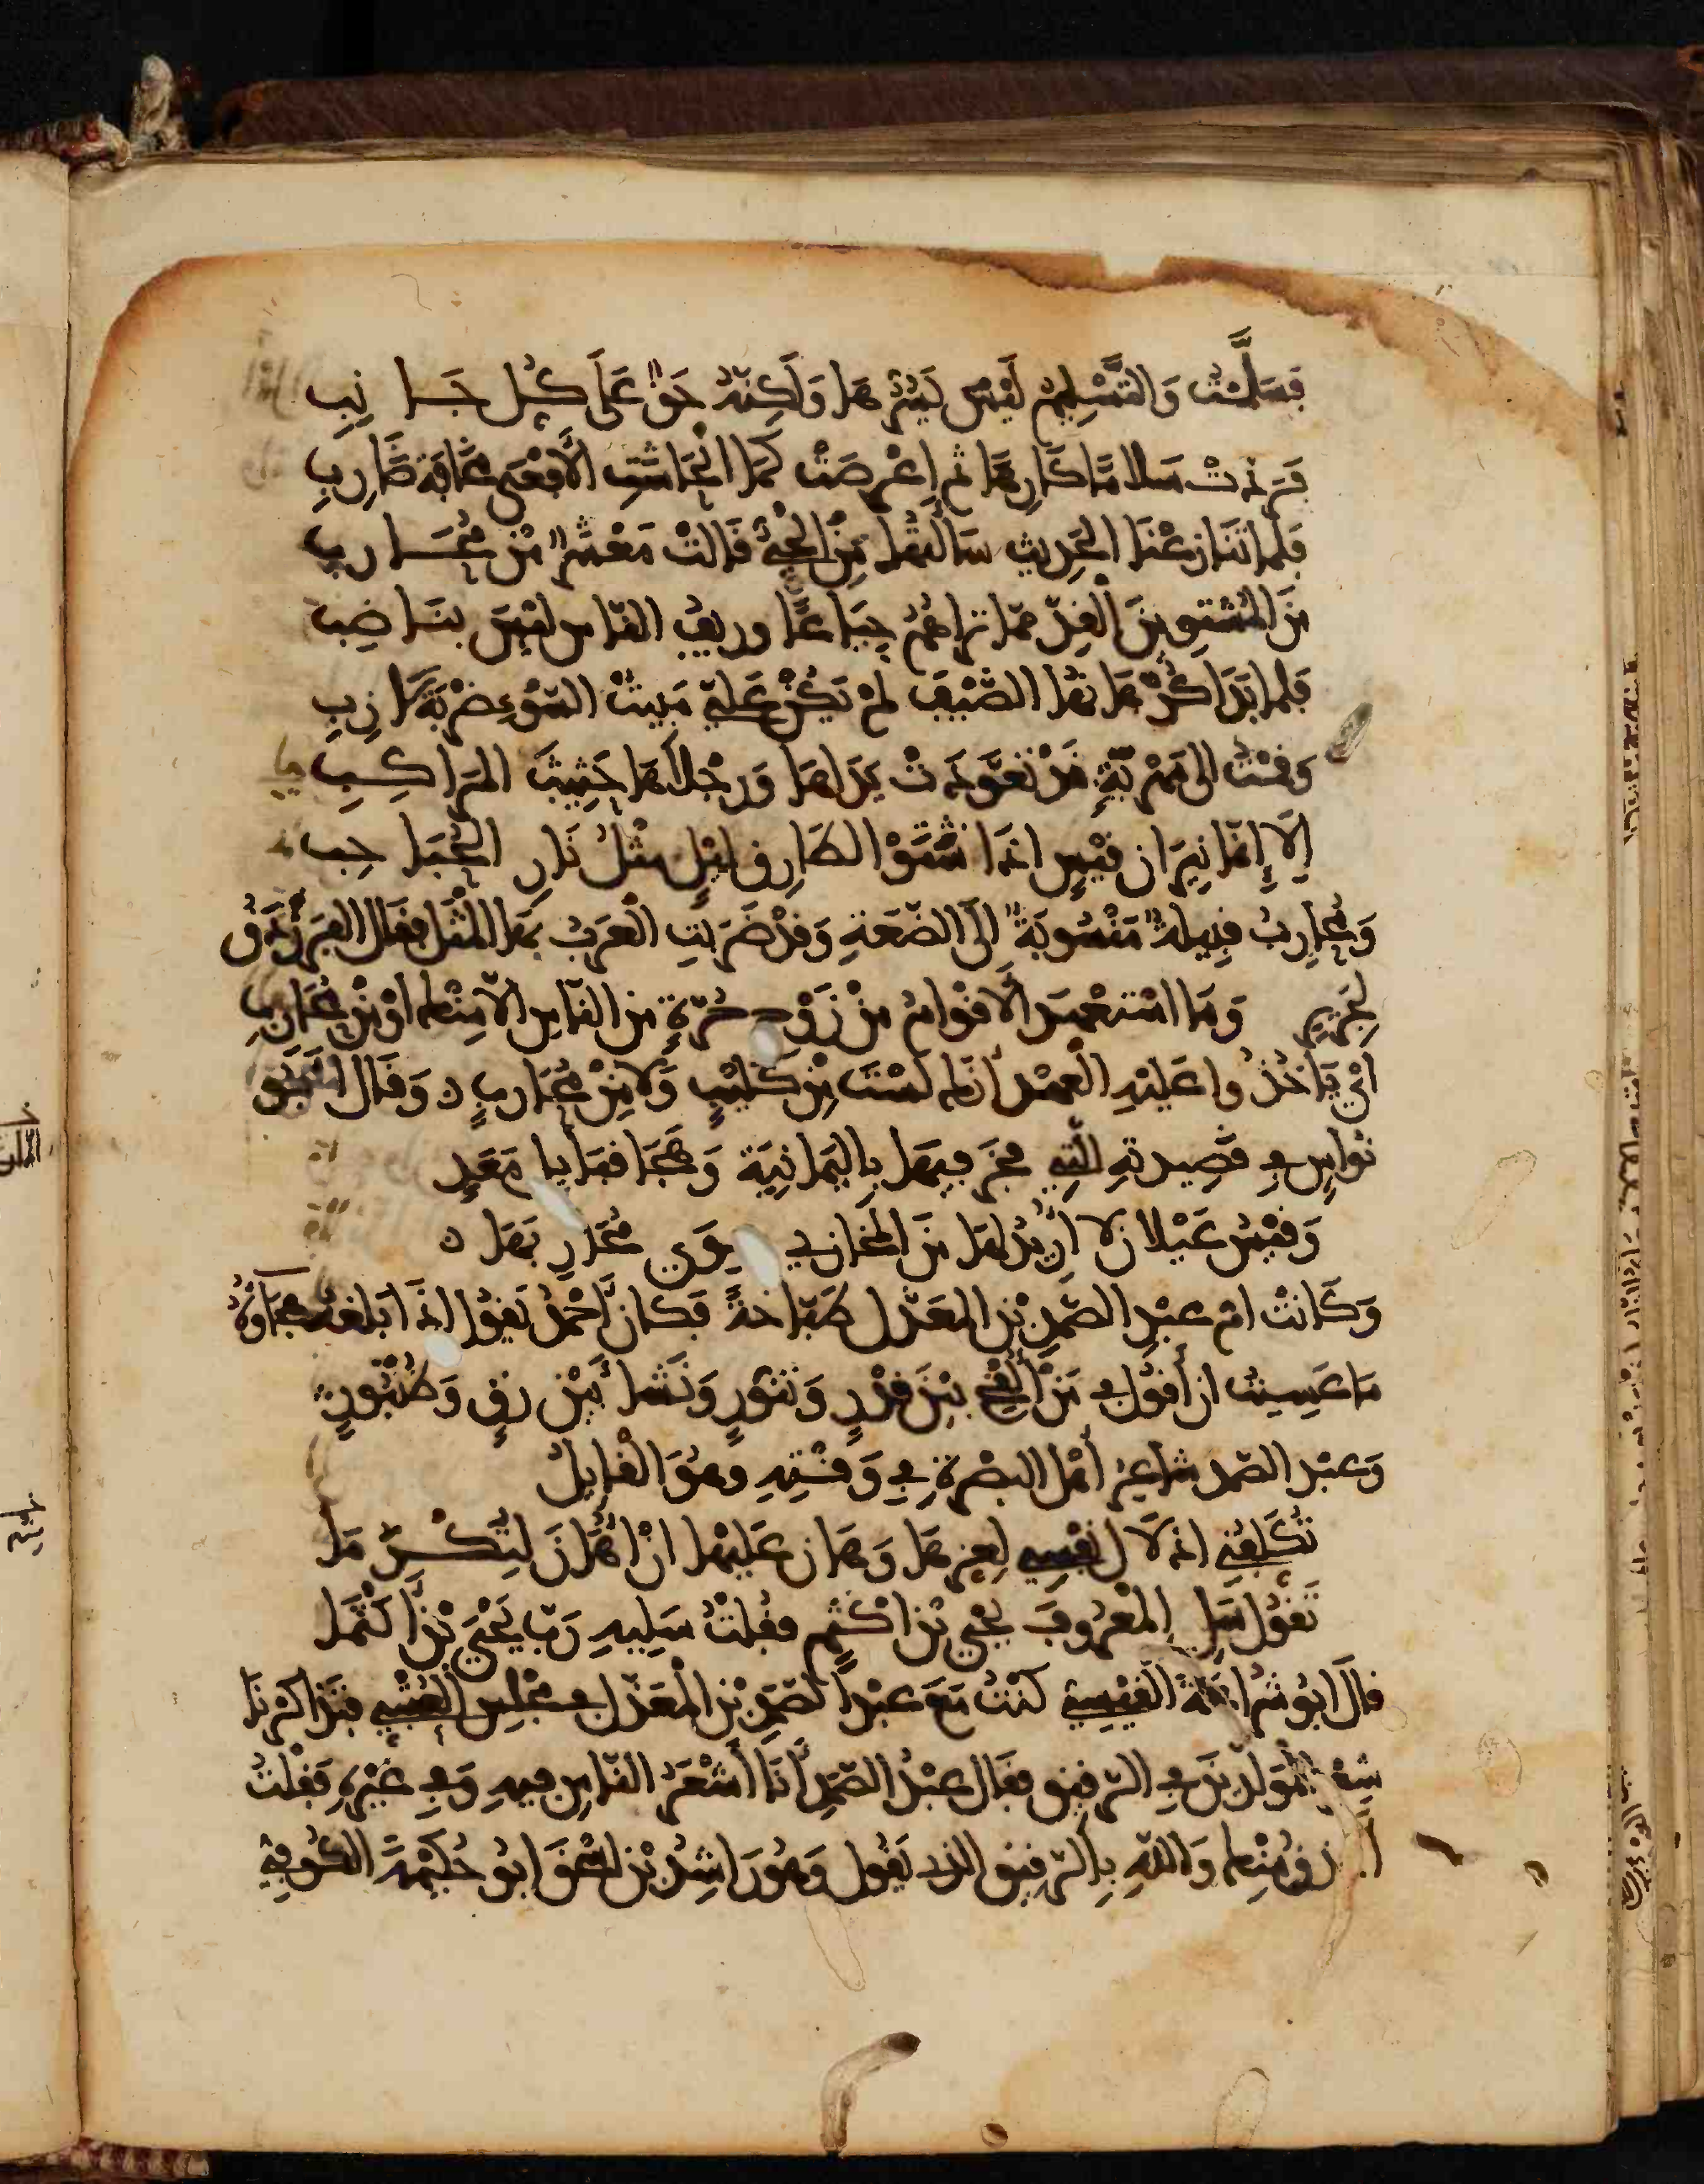 فَسَلَّمْتُ وَالتَّسْلِيمُ لَيْسَ يَسُرُّهَا وَلَكِنَّهُ حَقٌّ عَلَى كُلِّ جَانِبِ
فَرَدَّتْ سَلامًا كَارِهًا ثم اعْرَضَتْ كَمَا انْحَاشَتِ الأَفْعَى مَخَافَةَ ضَارِبِ
فَلما تَنَازَعْنَا الحَدِيثَ سَالتُها مَنِ الْحَيُّ قَالتْ مَعْشَرٌ مِنْ مُحَارِبِ
مِنَ المُشْتَوِينَ الْقِدَّ مما تراهُمُ جِيَاعًا وريفُ النّاسِ ليْسَ بنَاضِبِ
فَلما بَدَا حرْمَانُها الضَّيْفَ لمْ يَكُنْ عَليّ مَبِيتُ السَّوْءِ ضَرْبَةَ لازِبِ
وَقمْتُ الى مَهْرِيَّةٍ قَدْ تَعَوَّدَتْ يَدَاهَا وَرِجْلاهَا حَثِيثَ المَرَاكِبِ
الا إِنّمَا نِيرَان قَيْسٍ اذَا شَتَوْا لطَارِقِ ليْلٍ مثْلُ نَارِ الحُبَاحِبِ
وَمُحارِبُ قبيلةٌ مَنْسُوبَةٌ الَى الضَّعَةِ وَقدْ ضَرَبَتِ العَرَبُ بهَا المَثَل فقال الفَرَزْدَقُ
لِجَرِيرٍ وَمَا اسْتَعْهَدَ الأقْوَامُ مِنْ زَوْجِ حُرَّةٍ من النّاسِ الا مِنْك اوْ مِنْ مُحَارِبِ
اي يَاخُذُوا عَليْهِ الْعهْدَ أنك لَسْتَ مِنْ كُليْبٍ وَلا مِنْ مُحَارِبٍ ه وَقَال ابو
نُوَاسٍ في قَصِيدتِهِ الّتِي فخَرَ فيهَا بِاليَمانِيَة وَهَجَا قبَايل مَعَدٍّ
وَقَيْسُ عَيْلان لا اريدُ لهَا منَ المَخَازِي سِوَى مُحَارِبِهَا ه
وَكَانَتْ ام عبْدِ الصّمدِ بْن المعَذّل طَبّاخةً فكان أَحْمدُ يَقولُ اذَا بَلغَهُ هجَاؤهُ
مَا عَسِيتُ ان أقول في مَنْ أُلْقِحَ بيْنَ قِدْرٍ وَتنّورٍ وَنَشَأ بَيْن زِقٍّ وَطُنْبُورٍ
وَعبْد الصّمد شاعِرُ أهْل البصْرَةِ في وَقْتِهِ وهوَ القَايلُ
تُكَلّفُنِي اذلَال نفْسِي لِعِزّهَا وَهَان عَليْها انْ أُهَانَ لِتُكْرَمَا
تَقُولُ سَلِ المَعْرُوفَ يحْيى بْنَ اكْثَمٍ فقُلتُ سَلِيهِ رَبّ يَحْيَى بْنِ أَكْثَمَا
قال ابُو شُرَاعَةَ القَيْسِيّ كنْتُ مَعَ عبْد الصّمَدِ بْن المعَذّل في مجْلسٍ فتذَاكرْنَا
شِعْرَ المُوَلّدِينَ في الرّقيق فقَال عبْدُ الصّمَدِ أنَا أشْعَرُ النّاسِ فيهِ وَفي غيْرِهِ فَقُلْتُ
أحذق مِنْك وَاللّهِ بِالرّقيقِ الذي يَقُولُ وَهُوَ رَاشِدُ بْن اسْحَقَ ابُو حُليْمَة الكُوفِيُّ